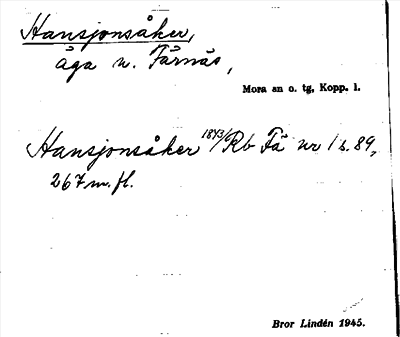 Hansjonsåker,
äga n. Färnäs,
Mora sn o. tg, Kopp. l.
Hansjonsåker 1843/6 Rb Fä nr 1 s. 89,
267 m. fl.
Bror Lindén 1945.